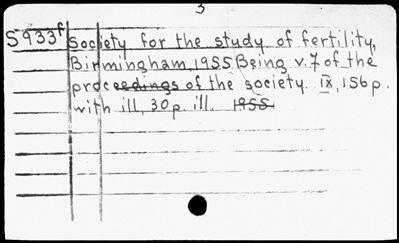 3
S933f Society for the study of fertility,
Birmingham, 1955 Being v.7 of the
proceedings of the society. IX, 156p.
with ill, 30p. ill. 1955